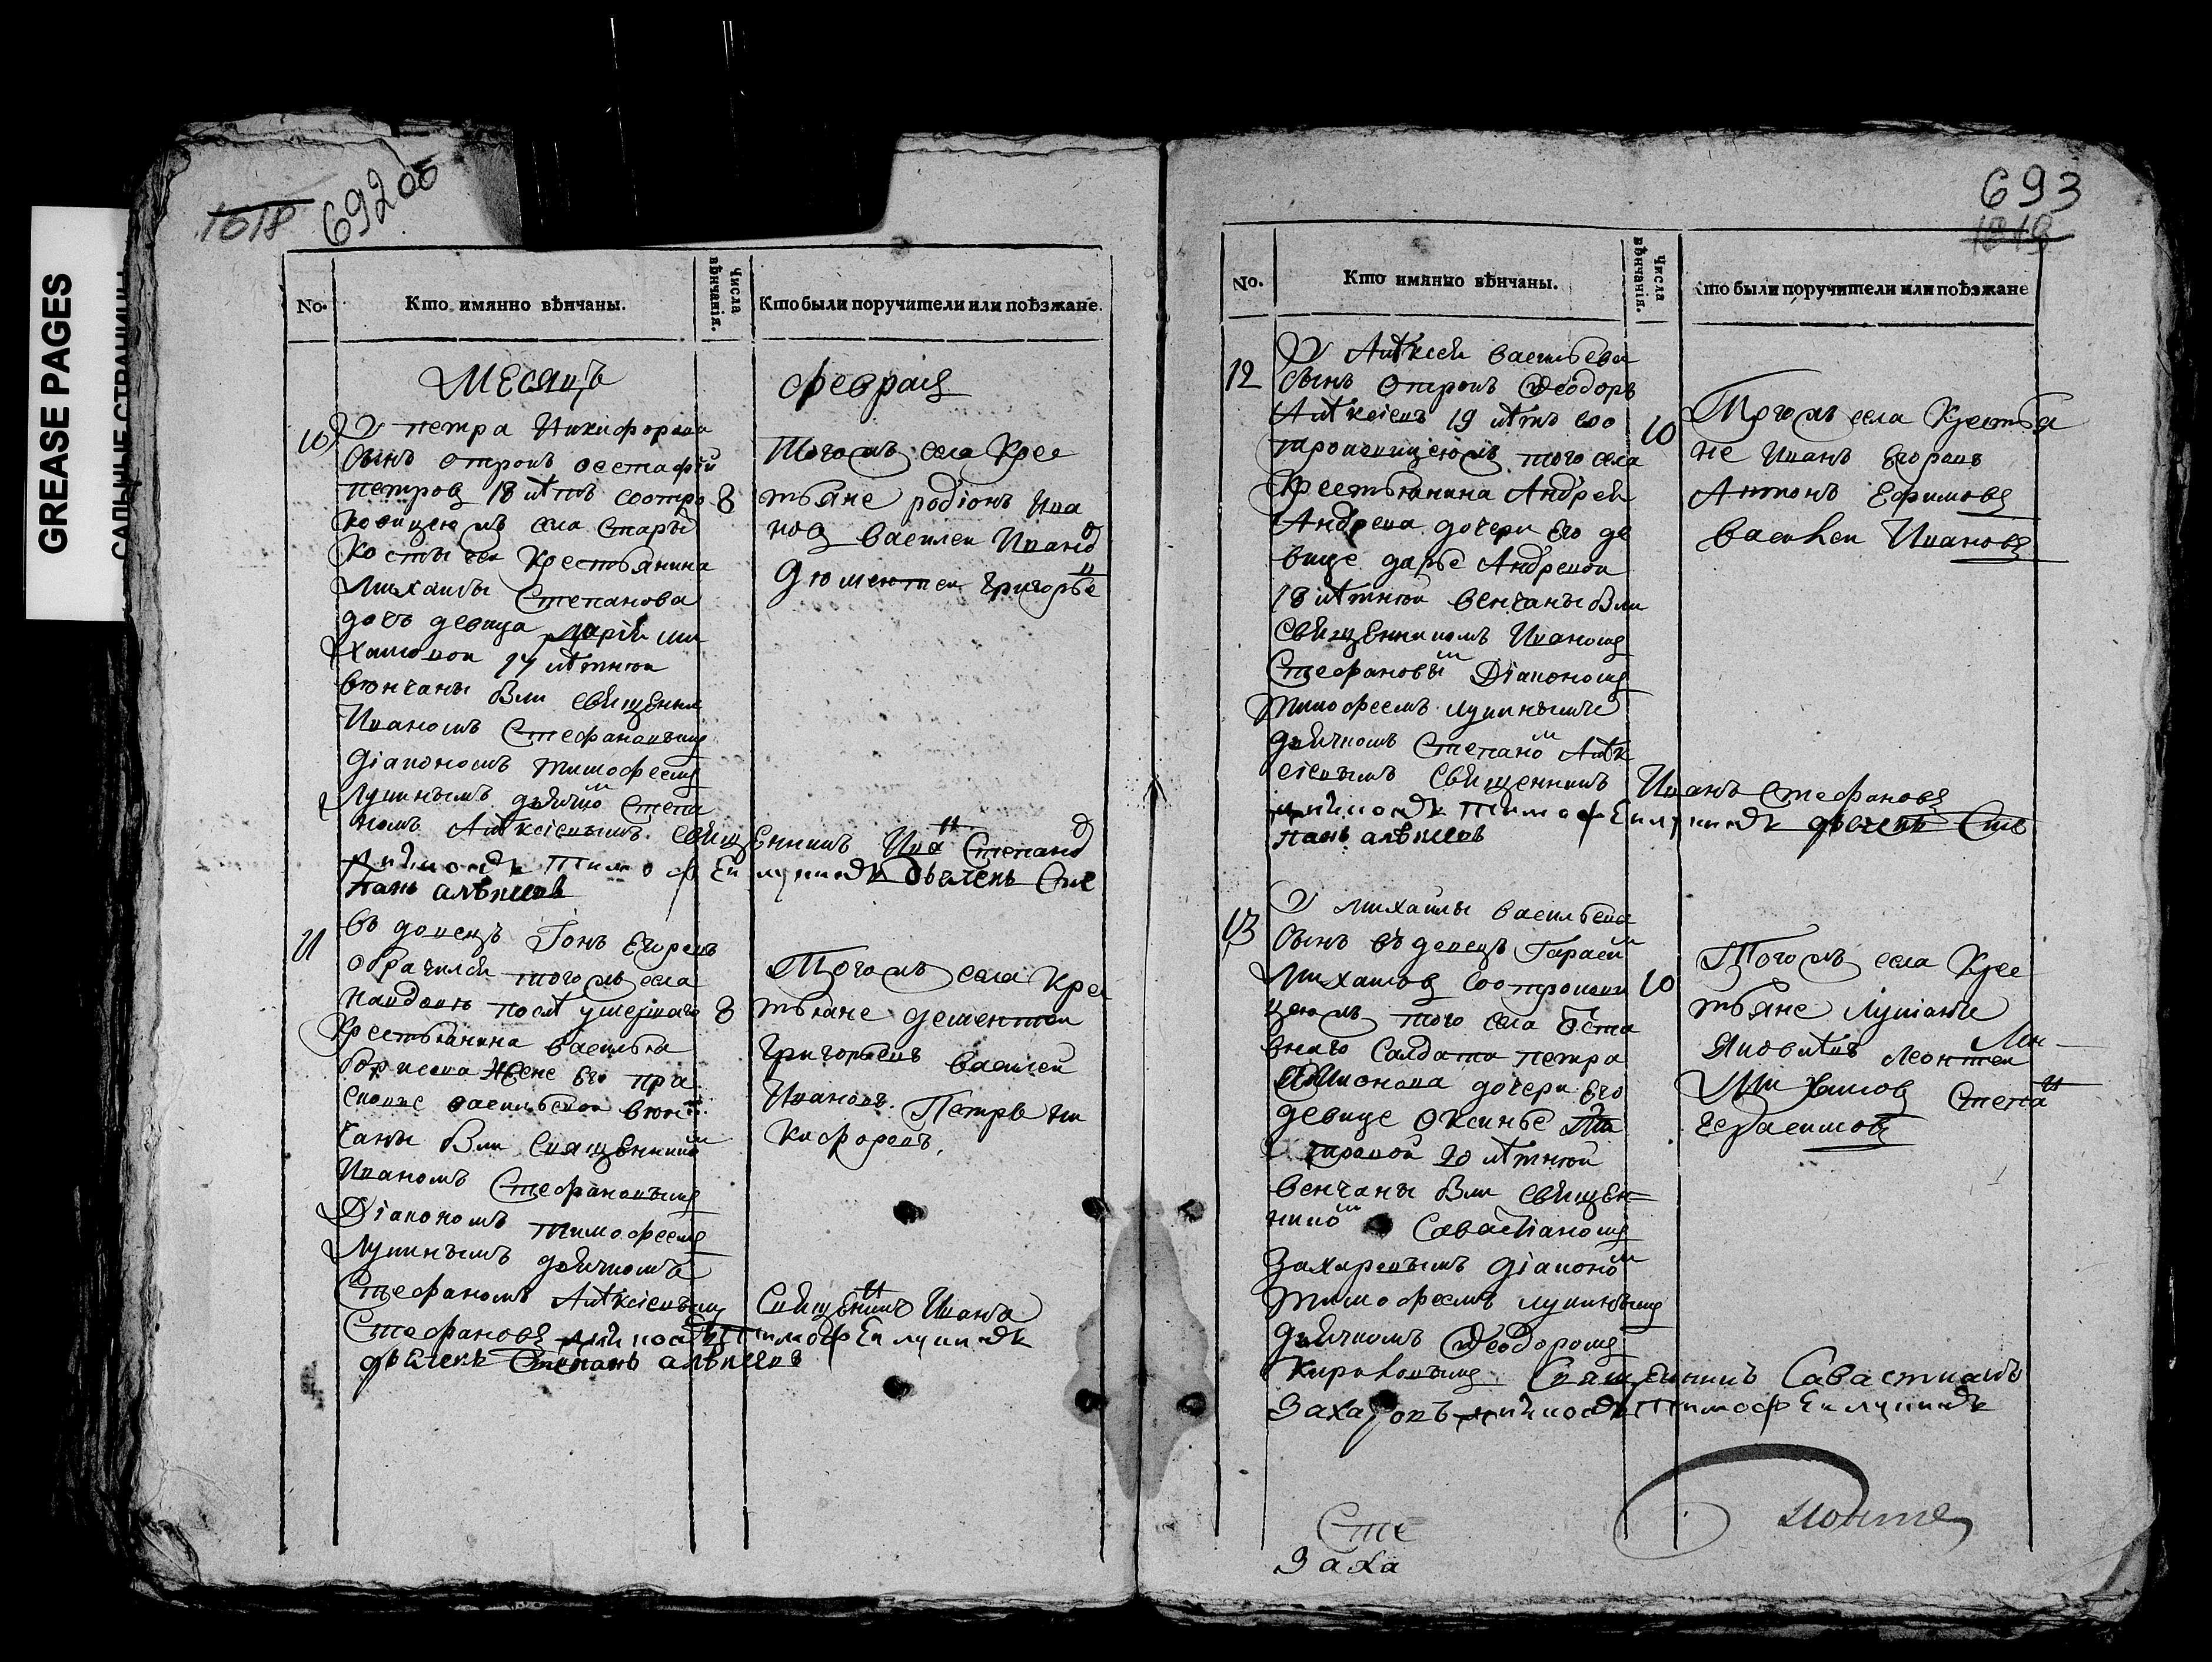 GREASE PAGES
САЛЬНЫЕ СТРАНИЦЫ
1018
692об
No.
Кто имянно вѣнчаны.
Числа вѣнчанія.
Кто были поручители или поѣзжане.
Месяцъ
февраля
10
У петра Никифорова
сынъ отрокъ
петровъ 18 лѣтъ соотро
8
ковицею жъ села Стары
крестьянина
Михайлы Степанова
дочь девица Марія Ми
хайловой 17 лѣтней
венчаны
Иваномъ Стефановымъ
Діакономъ Тимофеемъ
Лукинымъ дьячкомъ Степа
номъ Алѣксіевымъ священникъ Иванъ Степановъ
дияконъ Тимофеи лукинъ дьячекъ Сте
панъ алѣксеевъ
Тогожъ села Крес
тьяне родіонъ Ива
новъ Василеи Ивановъ
Дементеи Григорье
11
вдовецъ Іонъ Егоровъ
тогожъ села
на вдове послѣ умершаго
8
Крестьянина василья
борисова жене Его пра
сковье васильевой вен
чаны священникомъ
Иваномъ Стефановымъ
Діакономъ Тимофеемъ
Лукинымъ дьячкомъ
Стефаномъ Алѣксіевымъ Священникъ Иванъ
Стефановъ дияконъ Тимофеи лукинъ
дьячекъ Степанъ алѣксеевъ
Тогожъ села Крес
тьяне дементеи
Григорьевъ Василеи
Ивановъ. Петръ Ни
кифоровъ.
693
1019
No.
Кто имянно вѣнчаны.
Числа вѣнчанія.
Кто были поручители или поѣзжане
12
У Алѣксея васильева
сынъ отрокъ Феодоръ
Алѣксіевъ 19 лѣтъ соо
троковицеюжъ того села
10
Крестьянина Андрея
Андреева дочери Его де
вице дарье Андреевой
18 лѣтней венчаны
священникомъ Иваномъ
Стефановымъ Діакономъ
Тимофеемъ лукинымъ
дьячкомъ Степаномъ Алѣк
сіевымъ Священникъ Иванъ Стефановъ
дияконъ Тимофеи лукинъ дьячекъ Сте
панъ алѣксеевъ
Тогожъ села Крестья
не Иванъ Егоровъ
Антонъ Ефимовъ
василеи Ивановъ
13
У Михайлы васильева
сынъ вдовецъ Гарасимъ
Михайловъ соотрокови
10
цеюжъ того села
внаго Салдата петра
дочери Его
девице Оксинье Пе
тровой 20 лѣтней
венчаны священ
никомъ Савастіаномъ
Захаровымъ діакономъ
Тимофеемъ лукинымъ
дьячкомъ Феодоромъ
Кириловымъ Священникъ Савастианъ
Захаровъ дияконъ Тимофеи лукинъ
Тогожъ села Крес
тьяне Лукіанъ
Яковлѣвъ Леонтеи
Михайлов Степанъ
Герасимовъ
Сте
Заха